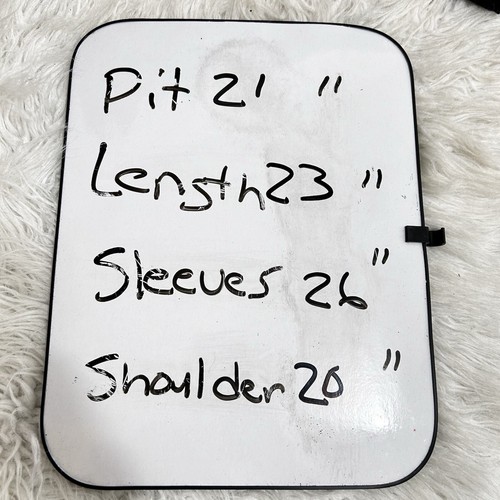 Pit 21 "
Length 23 "
Sleeves 26 "
Shoulder 20 "